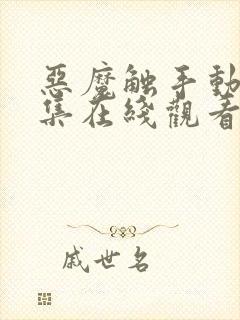 惡魔触手動
集在綫觀看
戚世名